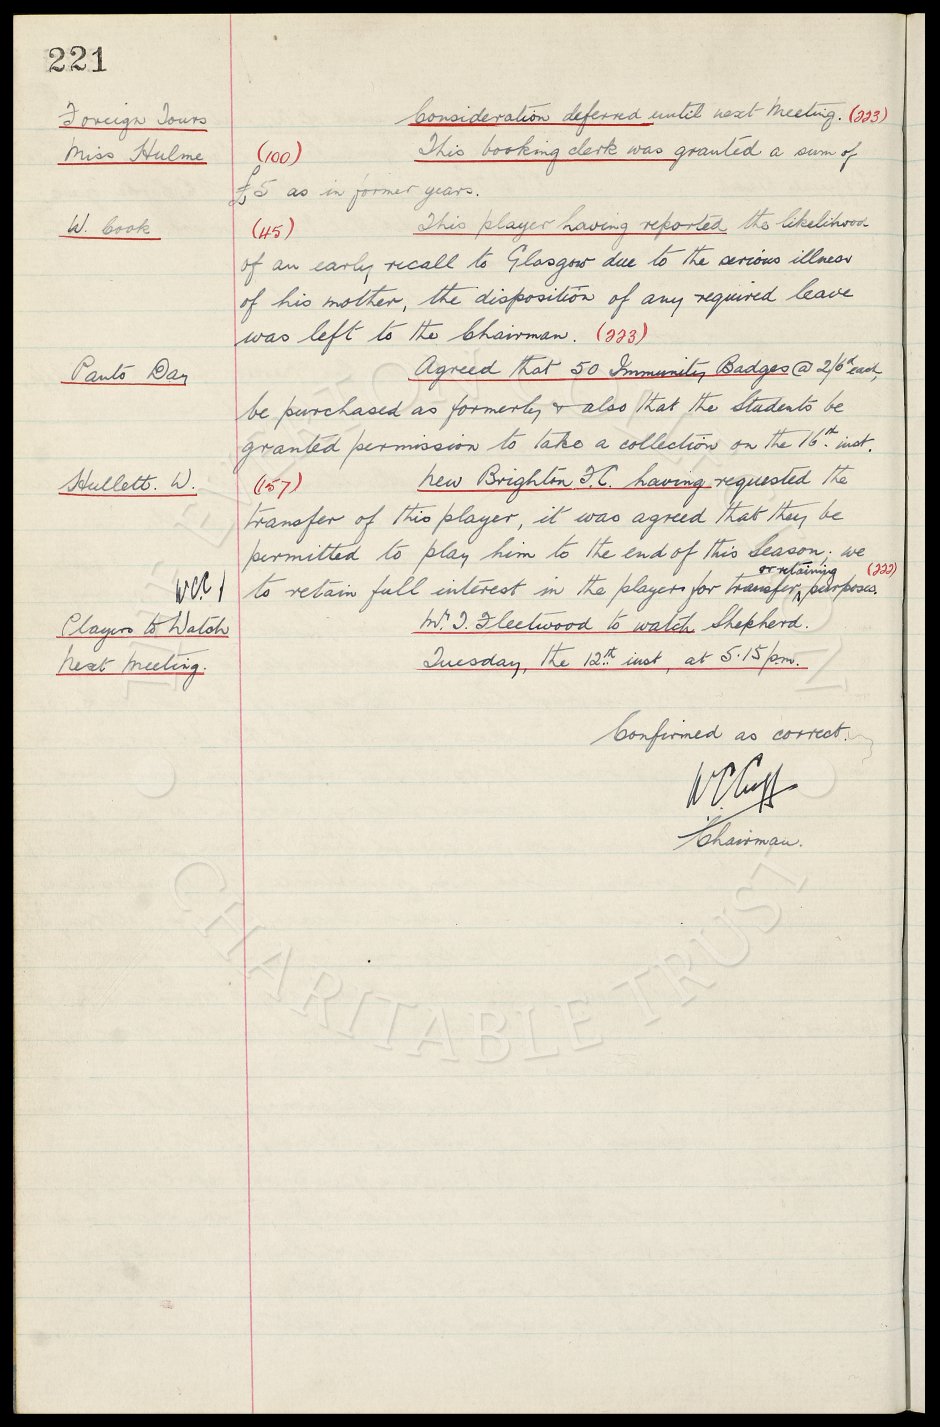 221
Foreign Tours Consideration deferred until next Meeting. (223)
Miss Hulme (100) This booking clerk was granted a sum of
£5 as in former years.
W. Cook (45) This player having reported the likelihood
of an early recall to Glasgow due to the serious illness
of his mother, the disposition of any required leave
was left to the Chairman. (223)
Panto Day Agreed that 50 Immunity Badges @ 2/6d each,
be purchased as formerly & also that the Students be
granted permission to take a collection on the 16th inst.
Hullett. W. (157) New Brighton F.C. having requested the
transfer of this player, it was agreed that they be
permitted to play him to the end of this Season; we
or retaining
WCC to retain full interest in the players for transfer ^ purposes. (222)
Players to Watch Mr. J. Fleetwood to watch Shepherd.
Next Meeting. Tuesday, the 12th inst, at 5.15 p.m.
Confirmed as correct.
WCCuff
Chairman.
THE EVERTON COLLECTION
CHARITABLE TRUST